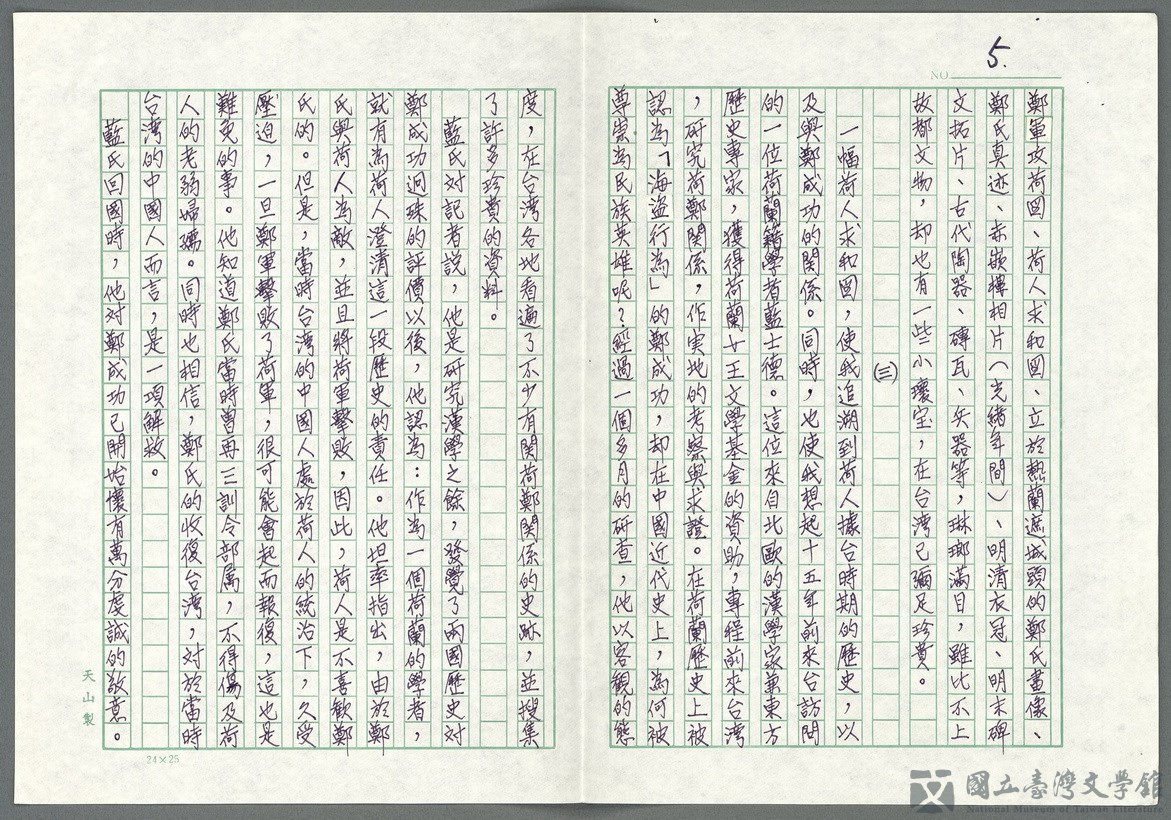 5.
NO.
鄭軍攻荷図、荷人求和図、立於熱蘭遮城頭的鄭氏畫像、
鄭氏真迹、赤嵌樓相片(光緒年間)、明清衣冠、明末碑
文拓片、古代陶器、磚瓦、兵器等，琳瑯滿目，雖比不上
故都文物，却也有一些小瓌宝，在台湾已彌足珍貴。
(三)
一幅荷人求和図，使我追溯到荷人據台時期的歷史，以
及與鄭成功的関係。同時，也使我想起十五年前來台訪問
的一位荷蘭籍學者藍士德。這位來自北歐的漢學家兼東方
歷史專家，獲得荷蘭女王文學基金的資助，專程前來台湾
，研究荷鄭関係，作実地的考察與求證。在荷蘭歷史上被
認為「海盜行為」的鄭成功，却在中國近代史上，為何被
尊崇為民族英雄呢？經過一個多月的研查，他以客観的態
度，在台湾各地看遍了不少有関荷鄭関係的史跡，並搜集
了許多珍貴的資料。
藍氏对記者説，他是研究漢學之餘，發覺了兩國歷史对
鄭成功迥殊的評價以後，他認為：作為一個荷蘭的學者，
就有為荷人澄清這一段歷史的責任。他坦率指出，由於鄭
氏與荷人為敵，並且將荷軍擊敗，因此，荷人是不喜歡鄭
氏的。但是，當時台湾的中國人處於荷人的統治下，久受
壓迫，一旦鄭軍擊敗了荷軍，很可能會起而報復，這也是
難免的事。他知道鄭氏當時曽再三訓令部属，不得傷及荷
人的老弱婦孺。同時也相信，鄭氏的收復台湾，对於當時
台湾的中國人而言，是一項解救。
藍氏回國時，他对鄭成功已開始懷有萬分虔誠的敬意。
天山製
24×25
國立臺灣文學館
National Museum of Taiwan Literature